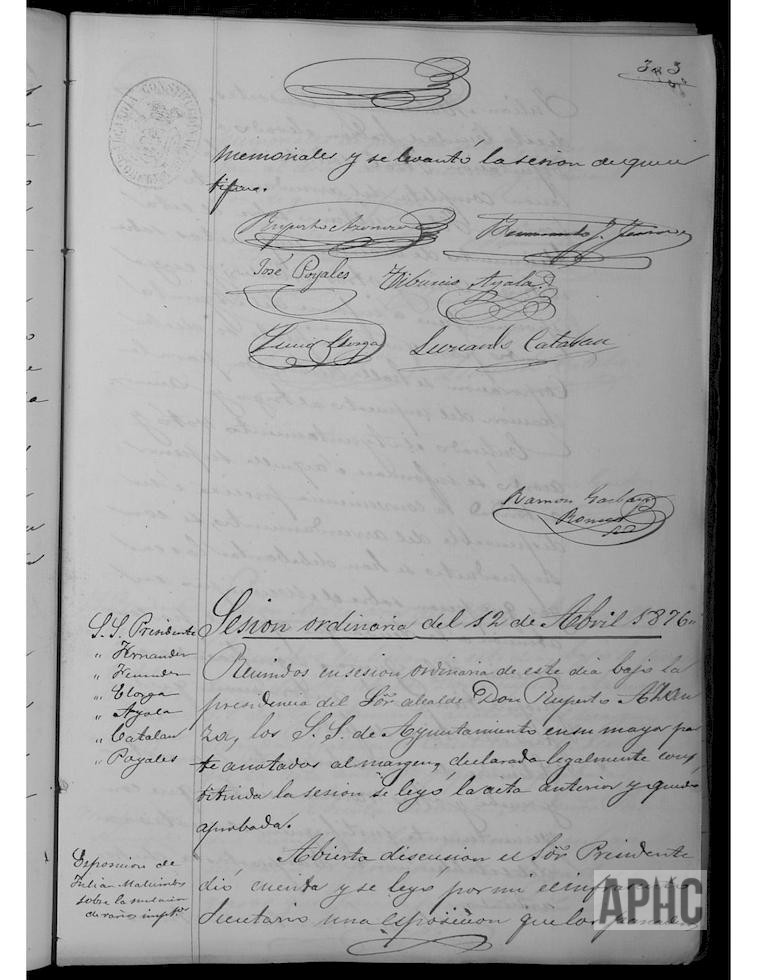 383
memoriales y se levantó la sesion de que cer
tifico.
Ruperto
José Poyales Tiburcio Ayala
Elorga Catalan
Ramon
Romeo
Sesion ordinaria del 12 de Abril 1876
S. S. Presidente
" Fernandez
"
" Elorga
" Ayala
" Catalan
" Poyales
Reunidos en sesion ordinaria de este dia bajo la
presidencia del Sor. alcalde Don Ruperto Azan
za, los S. S. de Ayuntamiento en su mayor par
te anotados al margen, declarada legalmente cons
tituida la sesion se leyó la acta anterior y quedó
aprobada.
Esposicion de
Julian
sobre la
de varios impts.
Abierta discusion el Sor. Presidente
dió cuenta y se leyó por mi el infrascrito
Secretario una esposicion que los
APHC